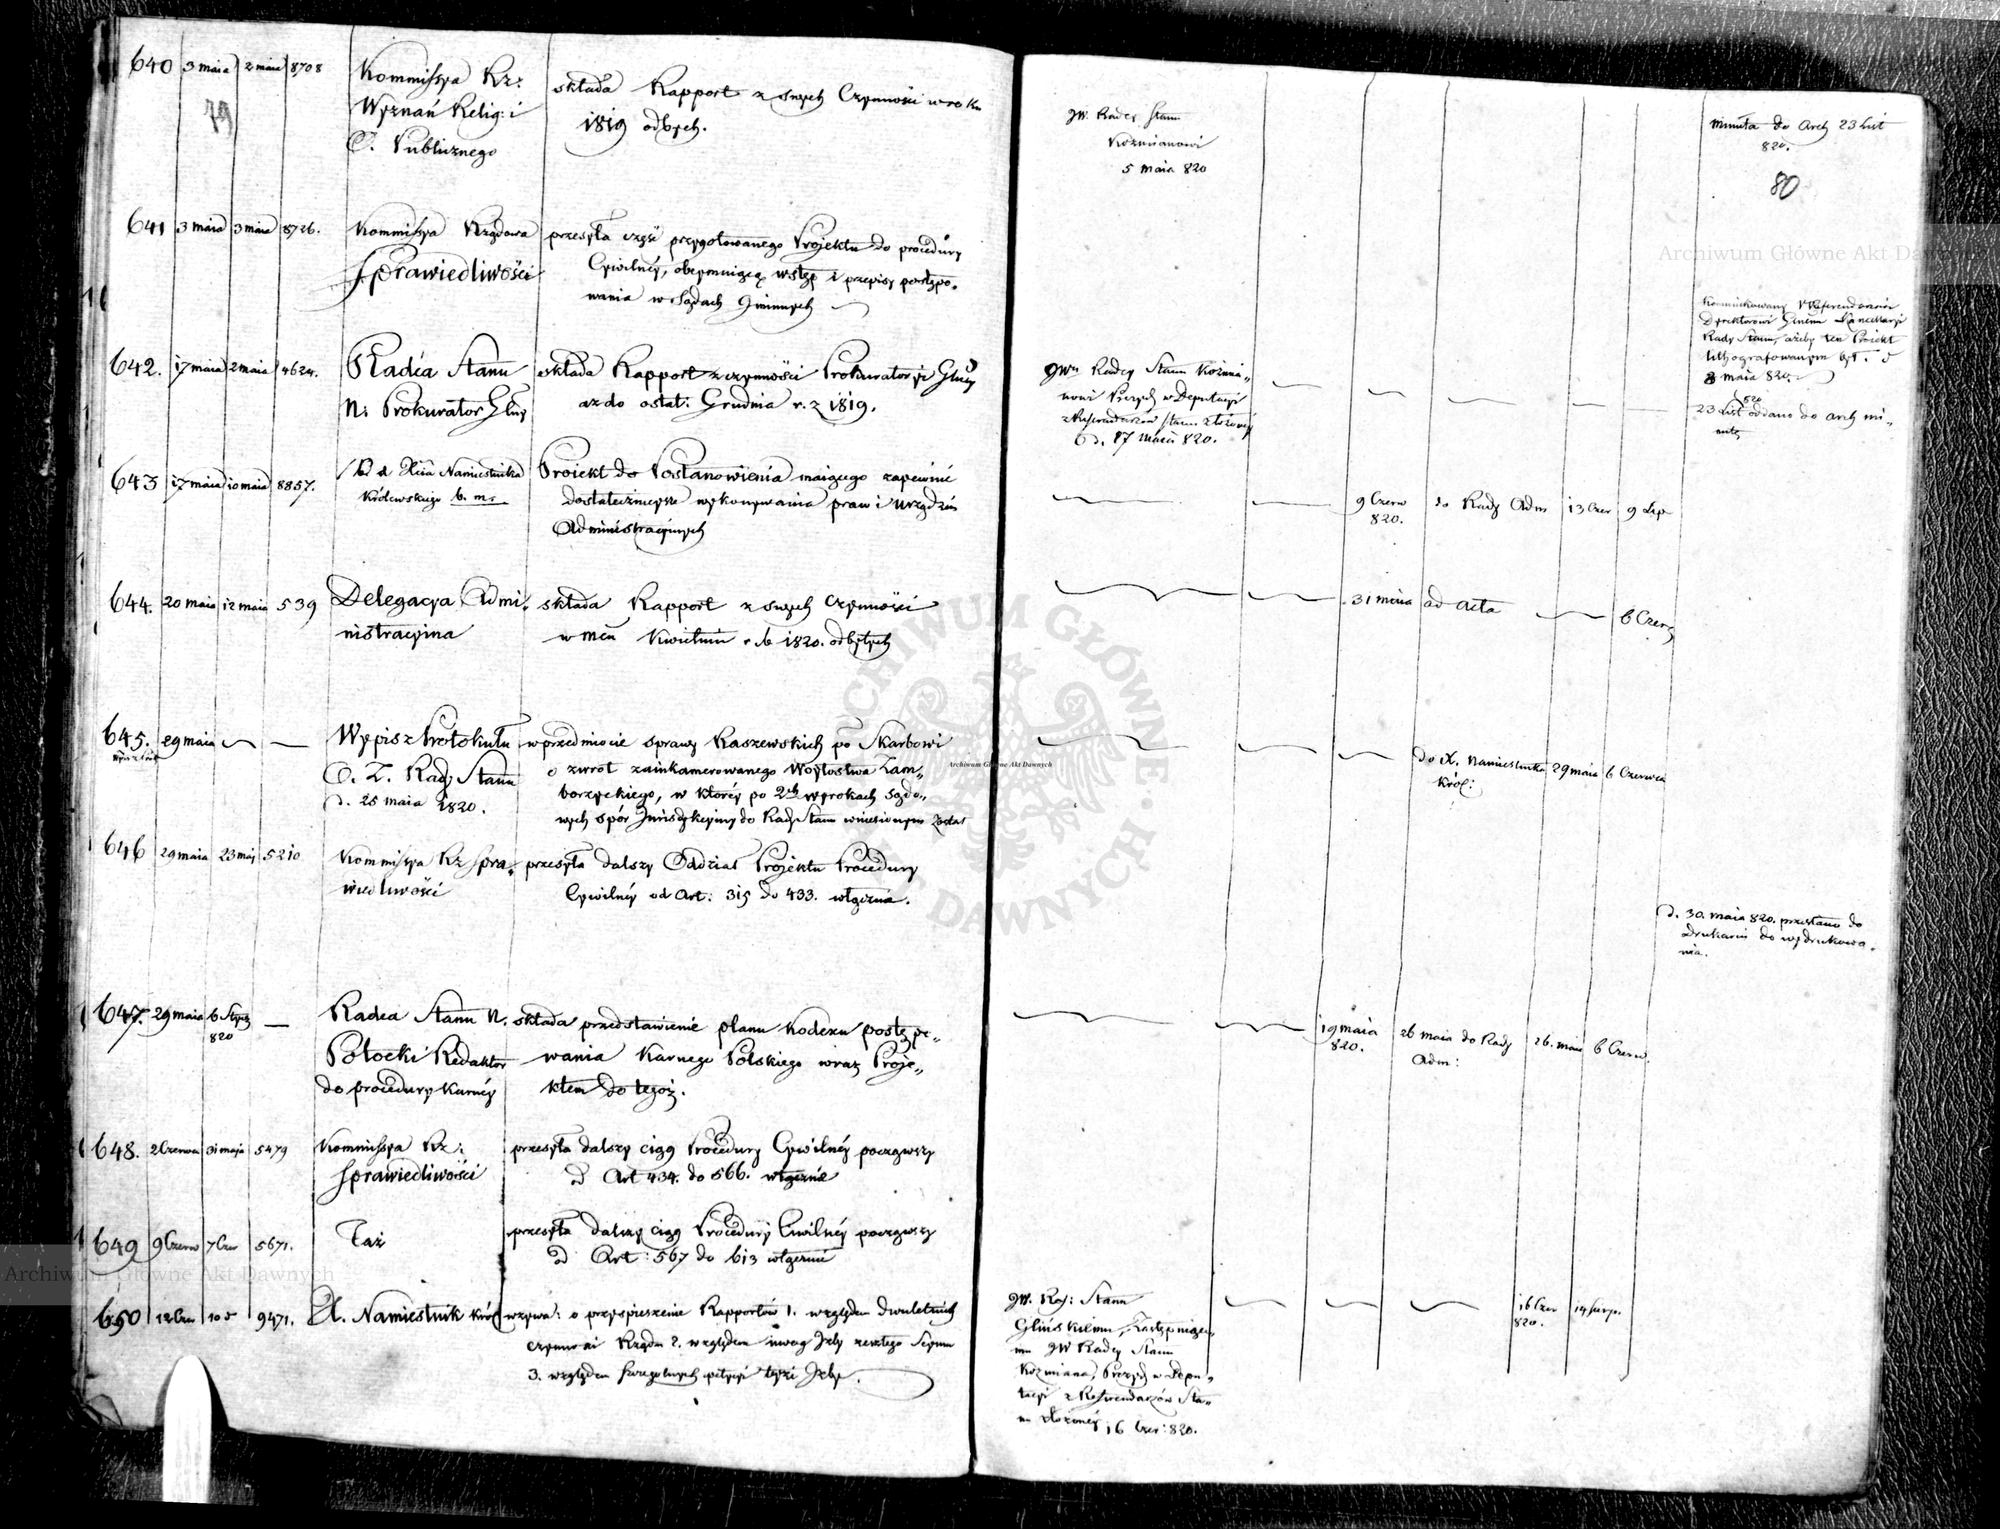 640 3 maia 2 maia 8708 Kommissya Rz: składa Rapport z swych Czynności w roku
79 Wyznań Relig: i 1819 odbych.
O. Publicznego
JW. Radcy Stanu
Koźmianowi
5 maia 820
minuta do Arch 23 List
820.
80
641 3 maia 3 maia 8726. Kommissya Rządowa przesyła część przygotowanego Projektu do procedury
Sprawiedliwości Cywilnéy, obeymuiącą wstęp i przepisy postępo-
wania w Sądach Gminnych
Kommunikowany Referendarzowi
Dyrektorowi Gener Kancellaryi
Rady Stanu, ażeby ten Proiekt
lithografowanym był. d
8 maia 820.
642. 17 maia 2 maia 4624. Radca Stanu składa Rapport z czynności Prokuratoryi Głney
N. Prokurator Glny aż do ostat: Grudnia r. z 1819.
JWu Radcy Stanu Koźmia-
nowi Prezyd w Deputacyi
z Referendarzów Stanu złożonéy
d. 17 maia 820.
820
23 List oddano do arch mi-
nutę
643 17 maia 10 maia 8857. od Xcia Namiestnika Proiekt do Postanowienia maiącego zapewnić
Królewskiego b. m. dostatecznieysze wykonywania praw i urządzeń
Administracyinych
9 Czerw do Rady Adm 13 Czer 9 Lip
820.
644. 20 maia 12 maia 539 Delegacya Admi- składa Rapport z swych czynności
nistracyina w mcu Kwietniu r. b 1820. odbytych
31 maia ad acta 6 Czerw
645. 29 maia Wypis z Protokułu w przedmiocie sprawy Raszewskich po Skarbowi
O. Z. Rady Stanu o zwrot zainkamerowanego Woytostwa Zam-
d. 25 maia 1820. borzyckiego, w któréy po 2ch wyrokach Sądo-
wych spór Jurisdykcyiny do Rady Stanu wniesionym został
do X. Namiestnika 29 maia 6 Czerwca
Król:
646 29 maia 23 maj 5210 Kommissya Rz Spra- przesyła dalszy Oddział Projektu Procedury
wiedliwości Cywilnéy od Art: 315 do 433. włącznie.
d. 30. maia 820. przesłano do
Drukarni do wydrukowa-
nia.
647. 29 maia 6 Stycz Radca Stanu N. składa przedstawienie planu kodexu postępo-
820 Potocki Redaktor wania Karnego Polskiego wraz Proje-
do procedury Karnéy ktem do tegoż.
19 maia 26 maia do Rady 26. maia 6 Czerw.
820. Adm:
648. 2 Czerwca 31 maja 5479 Kommissya Rz: przesyła dalszy ciąg Procedury Cywilnéy począwszy
Sprawiedliwości od Art 434. do 566. włącznie
649 9 Czerw 7 Czer 5671. Taż przesyła dalszy ciąg Procedury Cwilnéy począwszy
od Art: 567 do 613 włącznie
650 12 Czer 10 5 9471. X. Namiestnik Król wzywa: o przyspieszenie Rapportów 1. względem dwuletnich
czynności Rządu 2. względem uwag Izby zeszłego Seymu
3. względem szczególnych petycyi teyże Izby.
JW. Raj: Stanu
Glińskiemu, Zastępuiące-
mu JW Radcy Stanu
Koźmiana, Prezyd w Depu-
tacyi z Referendarzów Sta-
nu złożonéy 16 Czer: 820.
16 Czer 14 Sierp.
820.
Archiwum Główne Akt Dawnych
Archiwum Główne Akt Dawnych
Archiwum Główne Akt Dawnych
ARCHIWUM GŁÓWNE
AKT DAWNYCH